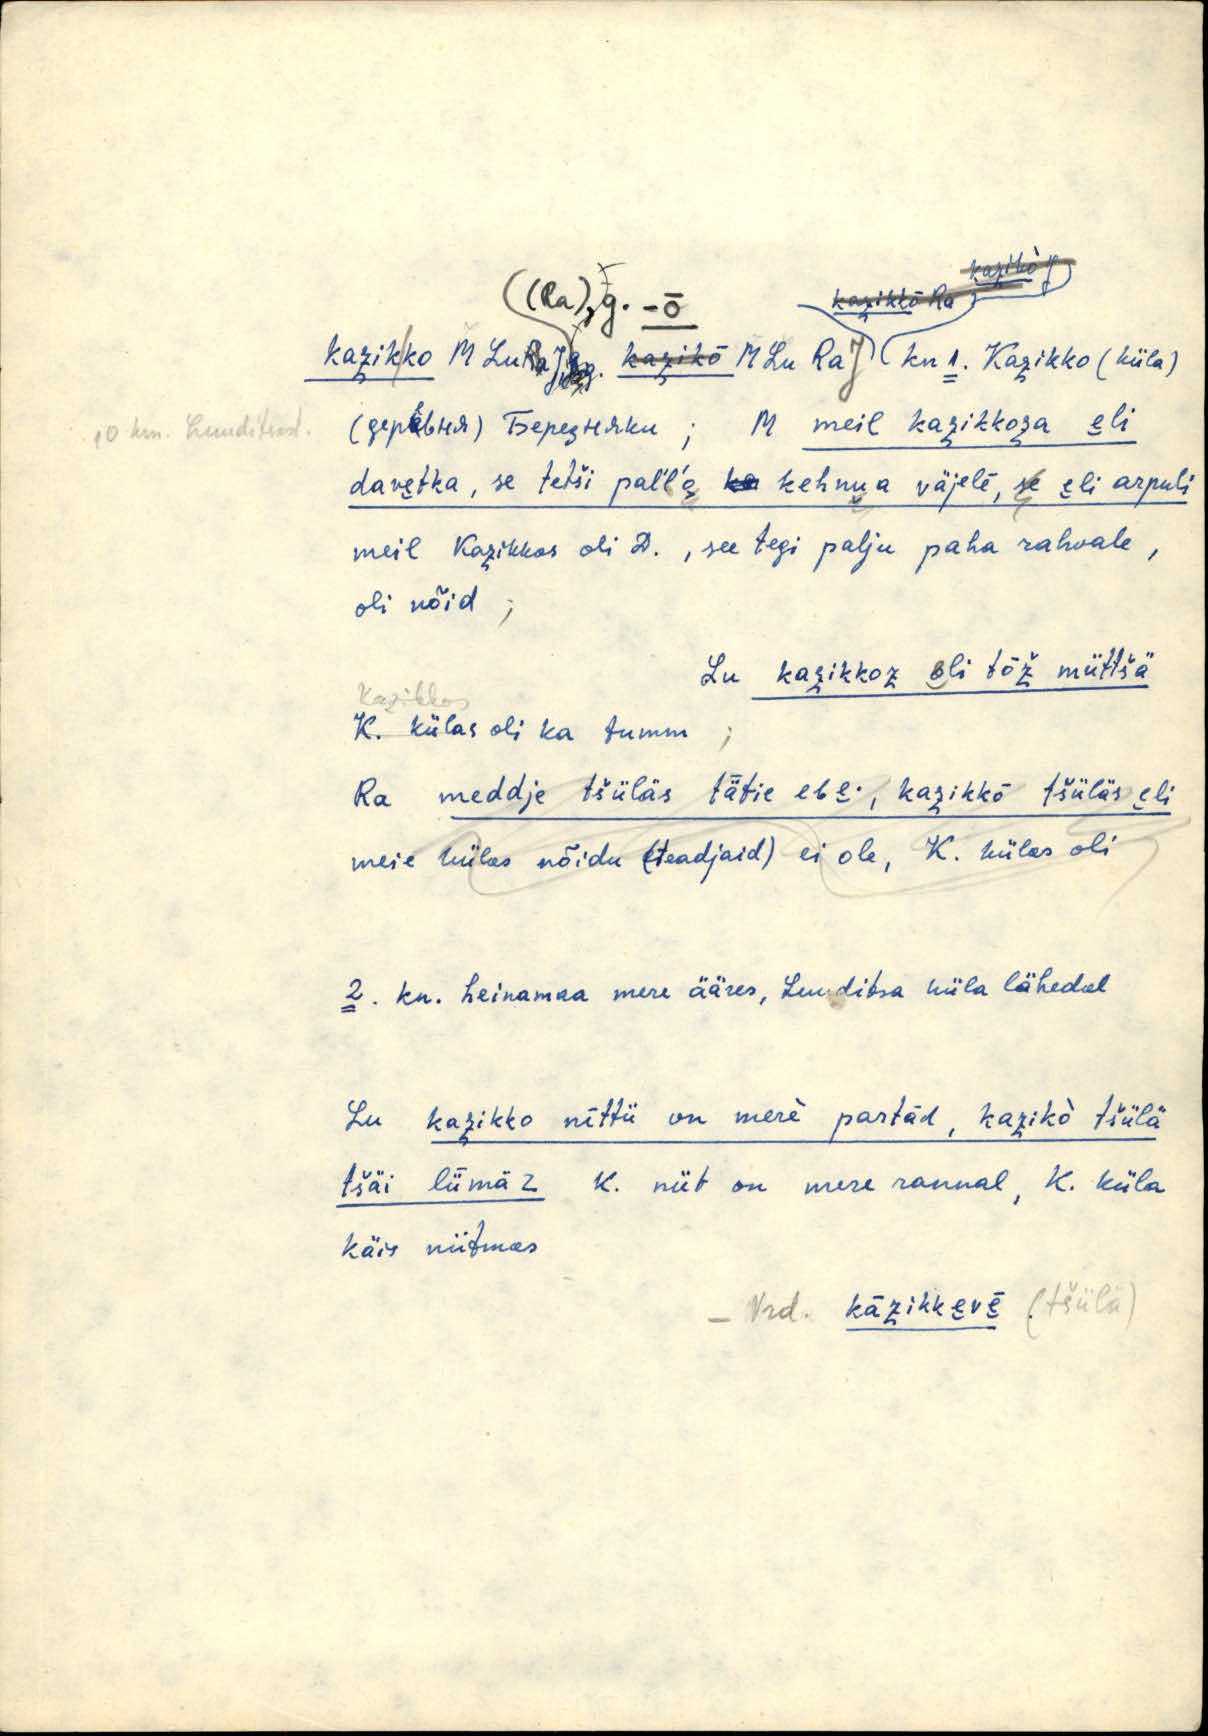 kaʒikkō Ra kaʒikò J
((Ra), g. -ō
kaʒik/ko M Lu Ra J g. kaʒikō M Lu Ra J kn 1. Kaʒikko (küla)
10 km. Lunditsast.
(деревня) Березняки ; M meil kaʒikkoʒa e̮li
dave̮tka, se tetši paĺĺo̭ kehnua väjelē, se e̮li arpuli
meil Kaʒikkos oli D. , see tegi palju paha rahvale,
oli nõid ;
Lu kaʒikkoz oli tōž müttšä
Kazikkos
K. külas oli ka tumm ;
Ra meddje tšüläs tätie eb e̮·, kaʒikkō tšüläs e̮li
meie külas nõidu (teadjaid) ei ole, K. külas oli
2. kn. heinamaa mere ääres, Lunditsa küla lähedal
Lu kaʒikko nīttü on merè partād, kaʒikò tšülä
tšäi lǖmäz K. niit on mere rannal, K. küla
käis niitmas
– Vrd. kāʒikke̮vē̮ (tšülä)